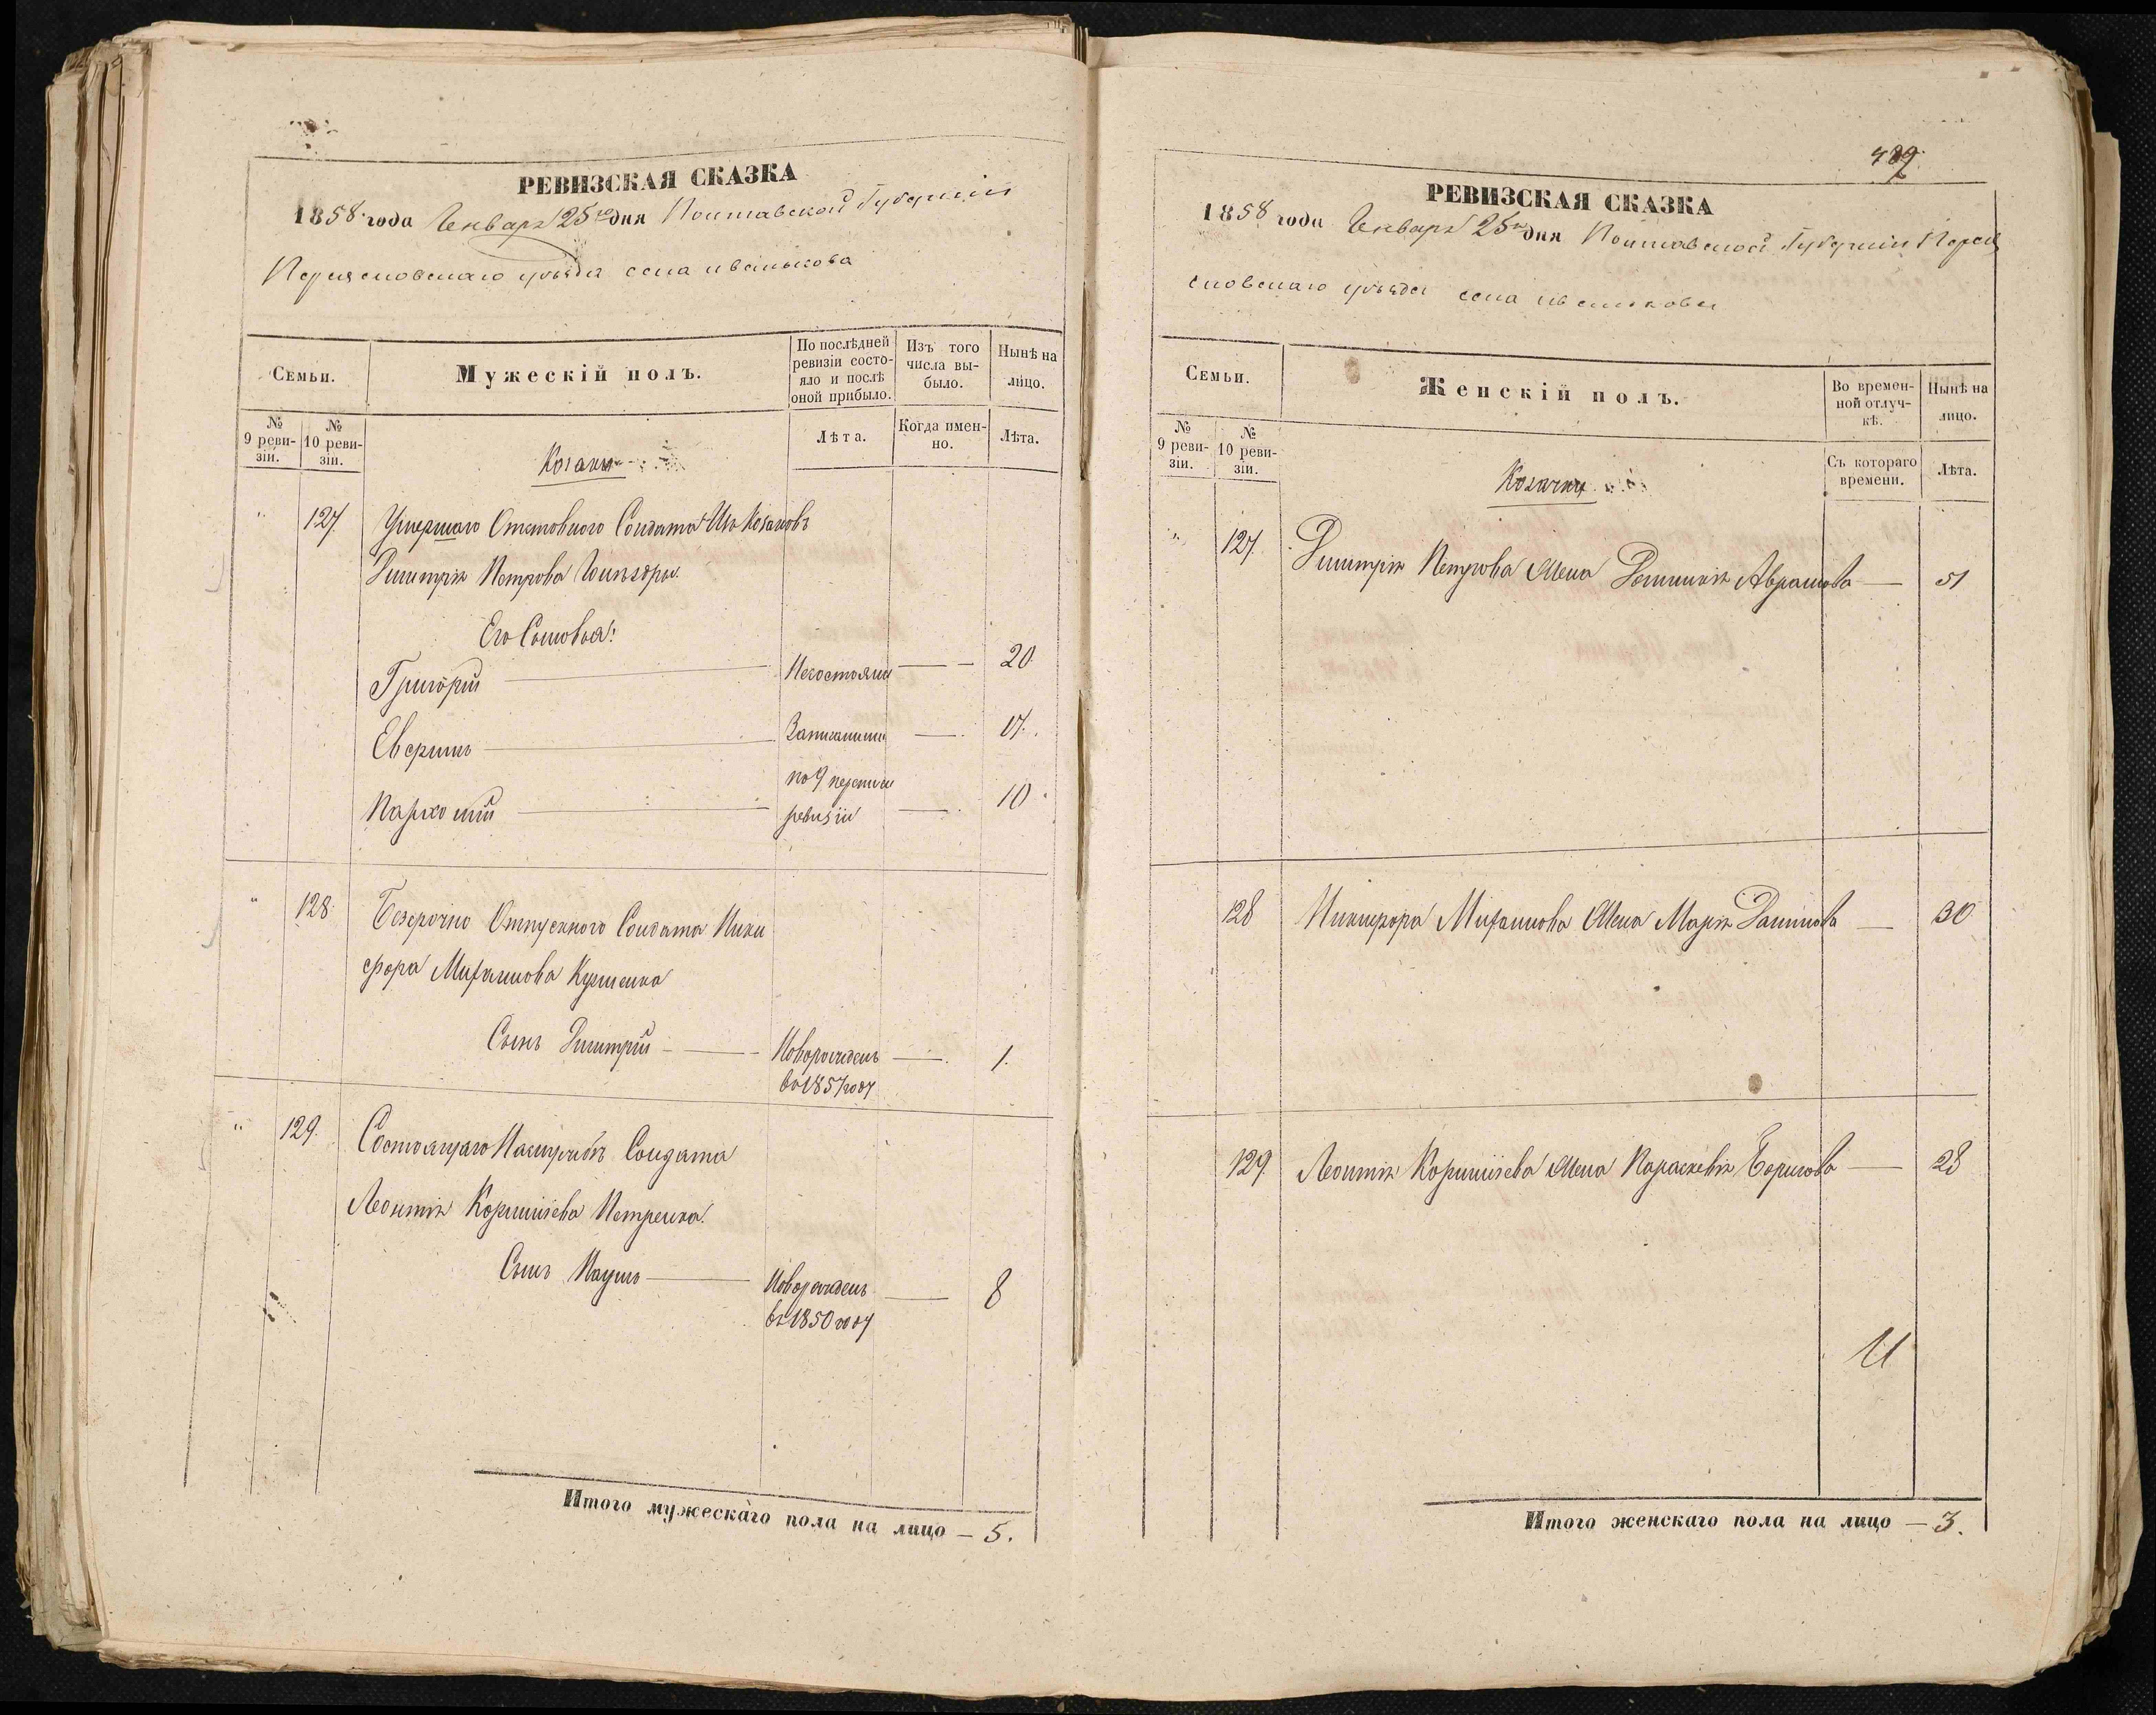 РЕВИЗСКАЯ СКАЗКА
1858 года Генваря 25го дня Полтавской Губерніи
Переясловскаго уѣзда села иванькова
Семьи.
Мужескій полъ.
По послѣдней ревизіи состояло и послѣ оной прибыло.
Изъ того числа выбыло.
Нынѣ на лицо.
№ 9 ревизіи.
№ 10 ревизіи.
Лѣта.
Когда именно.
Лѣта.
Козаки
" 127. Умершаго Отставного Солдата Изъ Козаковъ
Дмитрія Петрова
Его Сыновья:
Григорій Несостояли 20
Аверкій Записанными 17.
по 9 переписи
Пархомій ревизіи 10
" 128 Безсрочно Отпускного Солдата Ники
фора Михайлова Куценка
Сынъ Дмитрій Новорожденъ 1.
въ 1857 году
" 129. Состоящаго На службѣ Солдата
Леонтія Корніїева Петренка.
Сынъ Наумъ Новорожденъ 8
въ 1850 году
Итого мужескаго пола на лицо — 5.
489
РЕВИЗСКАЯ СКАЗКА
1858 года Генваря 25го дня Полтавской Губерніи Перея
словскаго уѣзда села иванькова
Семьи.
Женскій полъ.
Во временной отлучкѣ.
Нынѣ на лицо.
№ 9 ревизіи.
№ 10 ревизіи.
Съ котораго времени.
Лѣта.
Козачки
" 127. Дмитрія Петрова Жена Домникія Аврамова — 51
128 Никифора Михайлова Жена Марія Данилова — 30
129 Леонтія Корніїева Жена Параскевія Борисова — 28
Итого женскаго пола на лицо — 3.